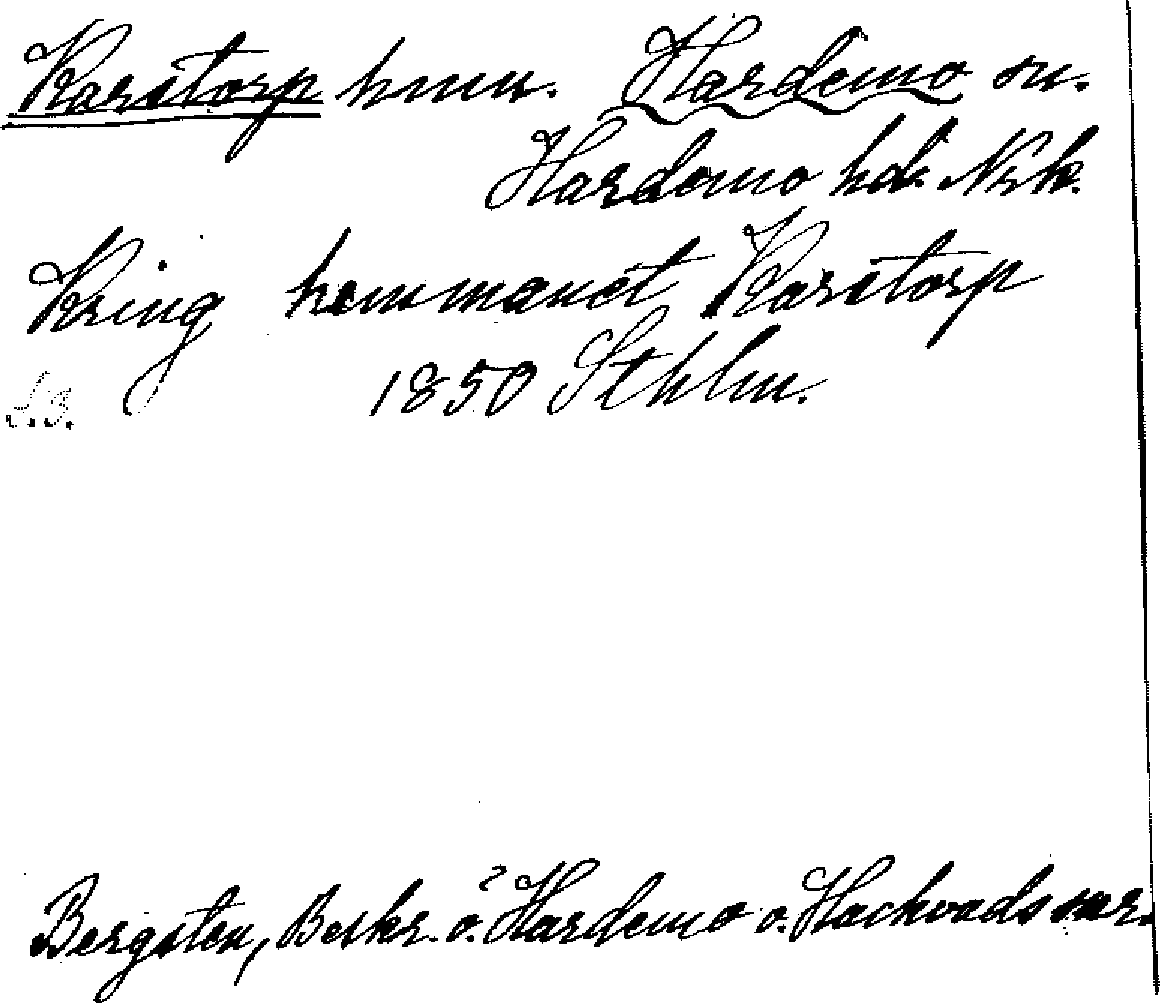 Karstorp hmn. Hardemo sn.
Hardemo hd. Nrk.
Kring hemmanet Karstorp
1850 Sthlm.
S.B.
Bergsten, Beskr. ö. Hardemo o. Hackvads snr.